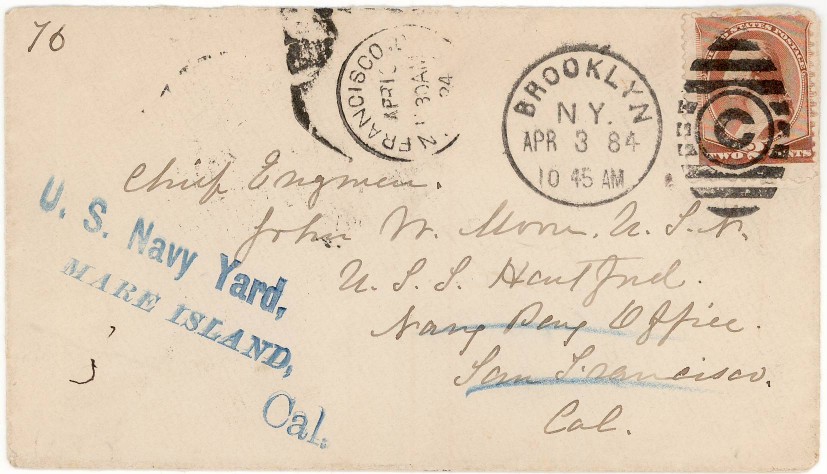 76
SAN FRANCISCO
APR 10
11 30 AM
84
BROOKLYN
N.Y.
APR 3 84
10 45 AM
UNITED STATES POSTAGE
C
TWO CENTS
Chief Engineer.
John W. Moore. U.S.N.
U.S.S. Hartford.
Navy Pay Office.
San Francisco.
Cal.
U. S. Navy Yard,
MARE ISLAND,
Cal.